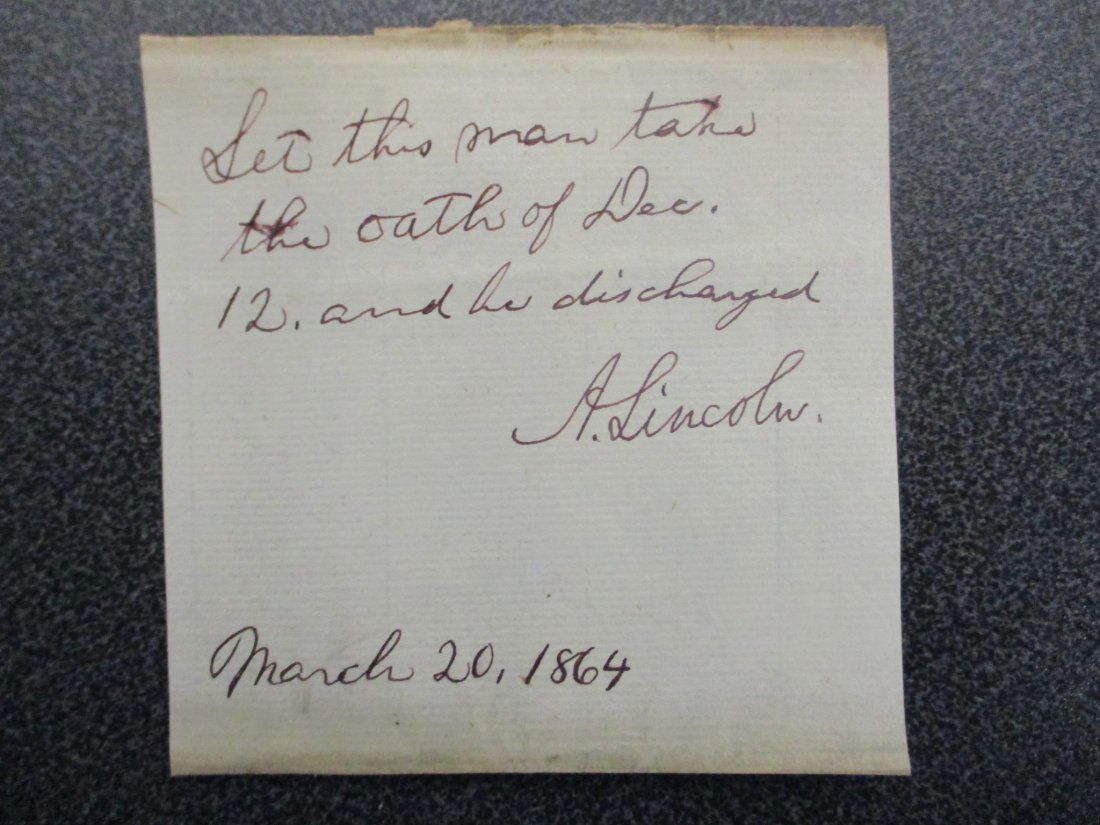 Let this man take
the oath of Dec.
12. and be discharged
A. Lincoln.
March 20, 1864